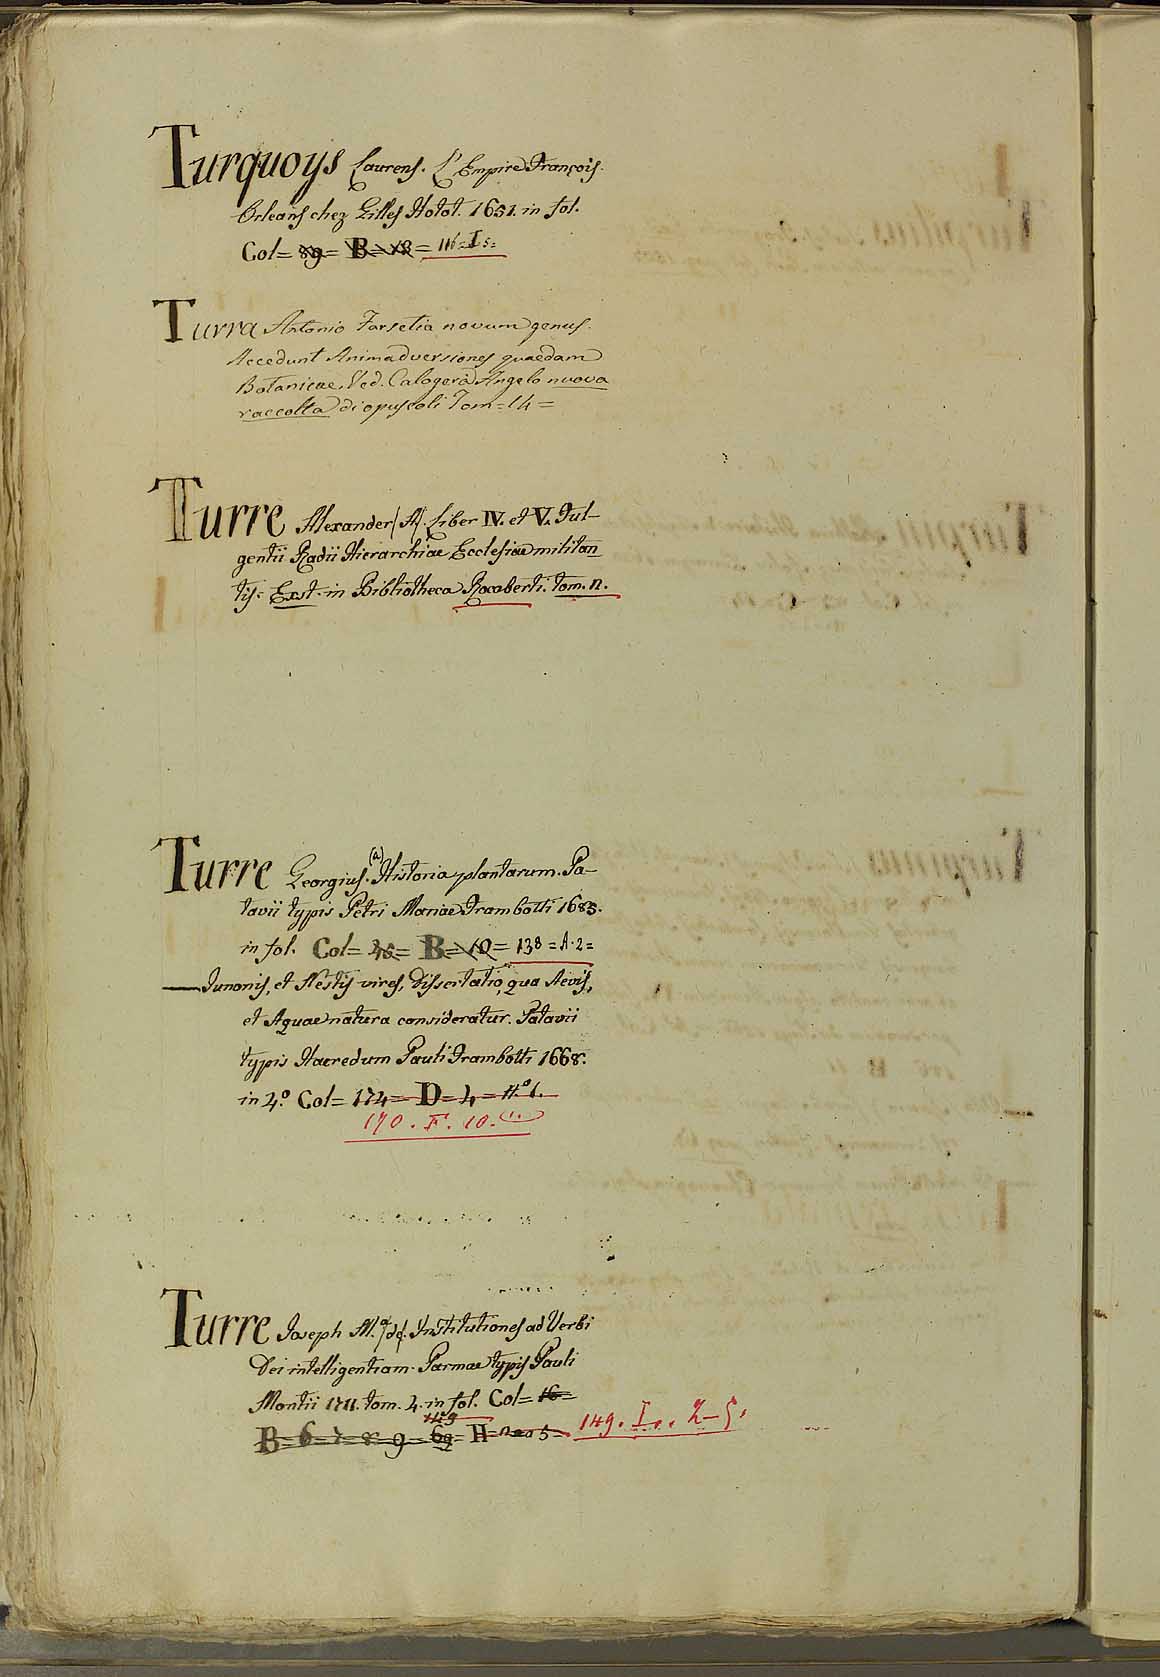 Turquoys Laurens. L'Empire François.
Orleans chez Gilles Hotot. 1651. in fol.
Col = 89 = B = 18 = 116 = I 5 =
Turra Antonio Farsetia novum genus.
Accedunt Animadversiones quaedam
Botanicae. Ved. Calogerà Angelo nuova
raccolta di opuscoli Tom = 14 =
Turre Alexander (A). Liber IV. et V. Ful-
gentii Radii Hierarchiae Ecclesiae militan
tis. Exst. in Bibliotheca Rocaberti. tom. II.
Turre Georgius. (a) Historia plantarum. Pa-
tavii typis Petri Mariae Frambotti 1685.
in fol. Col = = B = 10 = 138 = A. 2 =
— Junonis, et Nestis vires, Dissertatio, qua Aeris,
et Aquae natura consideratur. Patavii
typis Haeredum Pauli Frambotti 1668.
in 4.º Col = 174 = D = 4 = n.º 1.
170. F. 10. (1.
Turre Joseph M.ª de. Institutiones ad Verbi
Dei intelligentiam. Parmae typis Pauli
Montii 1711. tom. 4. in fol. Col = 16 =
149
B = 6 = 7 = 8 = 9 = 69 = H = 2 5 = 149. I. 2-5.